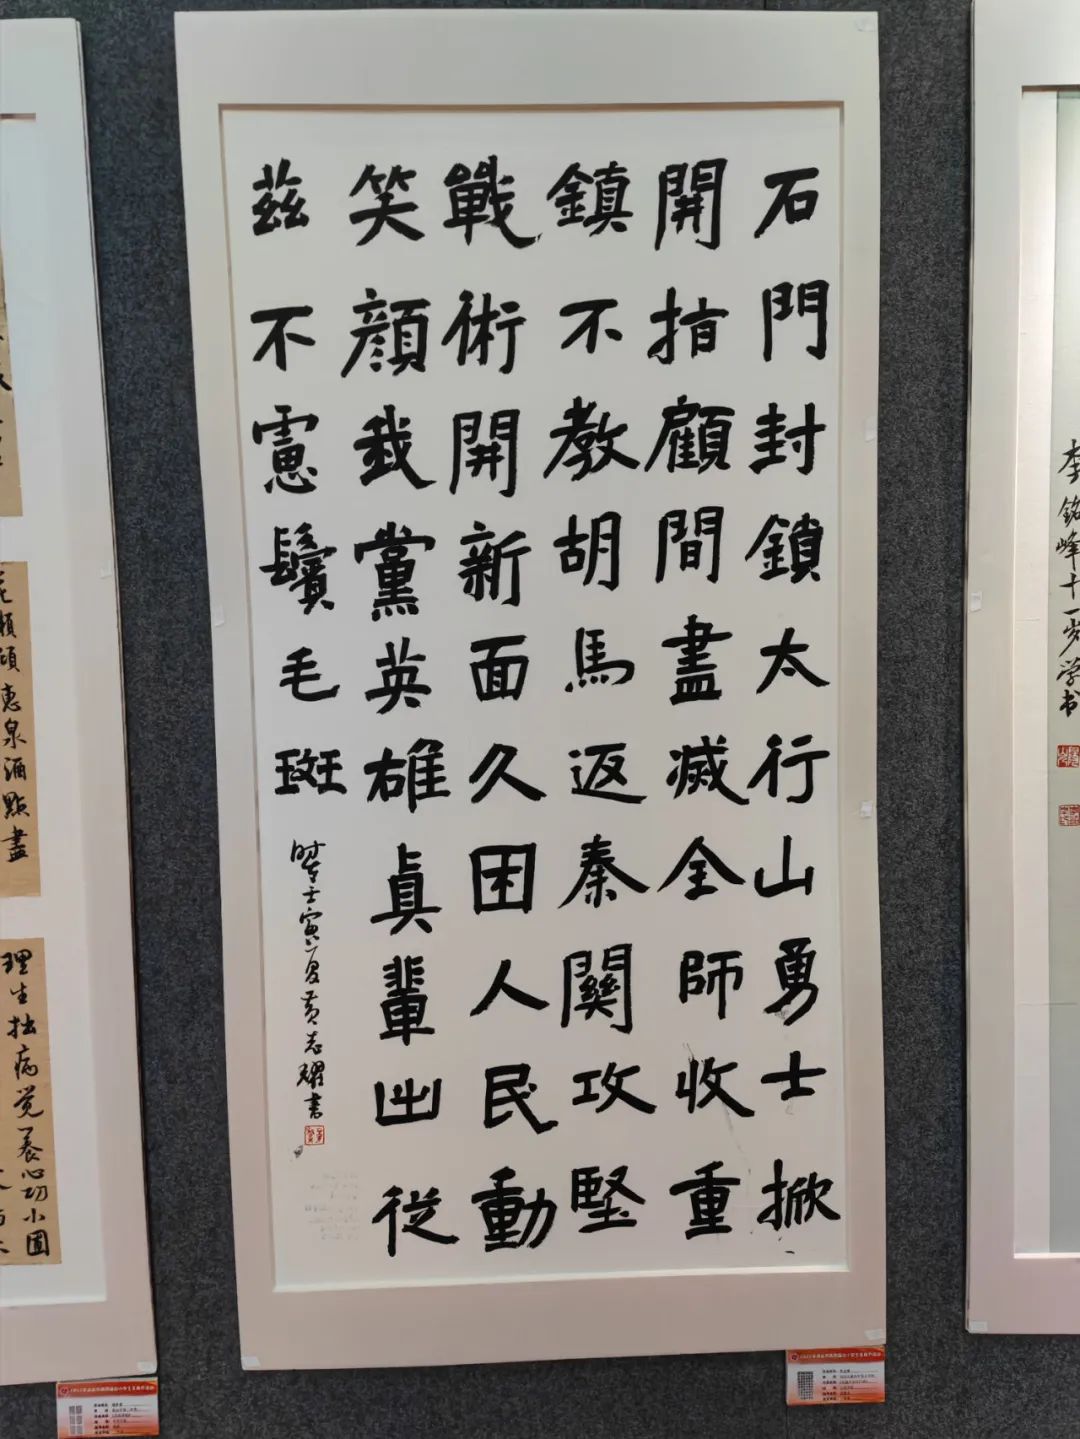 石門封鎖太行山勇士掀
開指顧間盡滅全師收重
鎮不教胡馬返秦關攻堅
戰術開新面久困人民動
笑顏我黨英雄真輩出從
茲不慮鬢毛斑
時在壬寅夏黃志耀書
李銘峰十一岁学书
惠泉酒點盡
理生拙病觉養心功小園